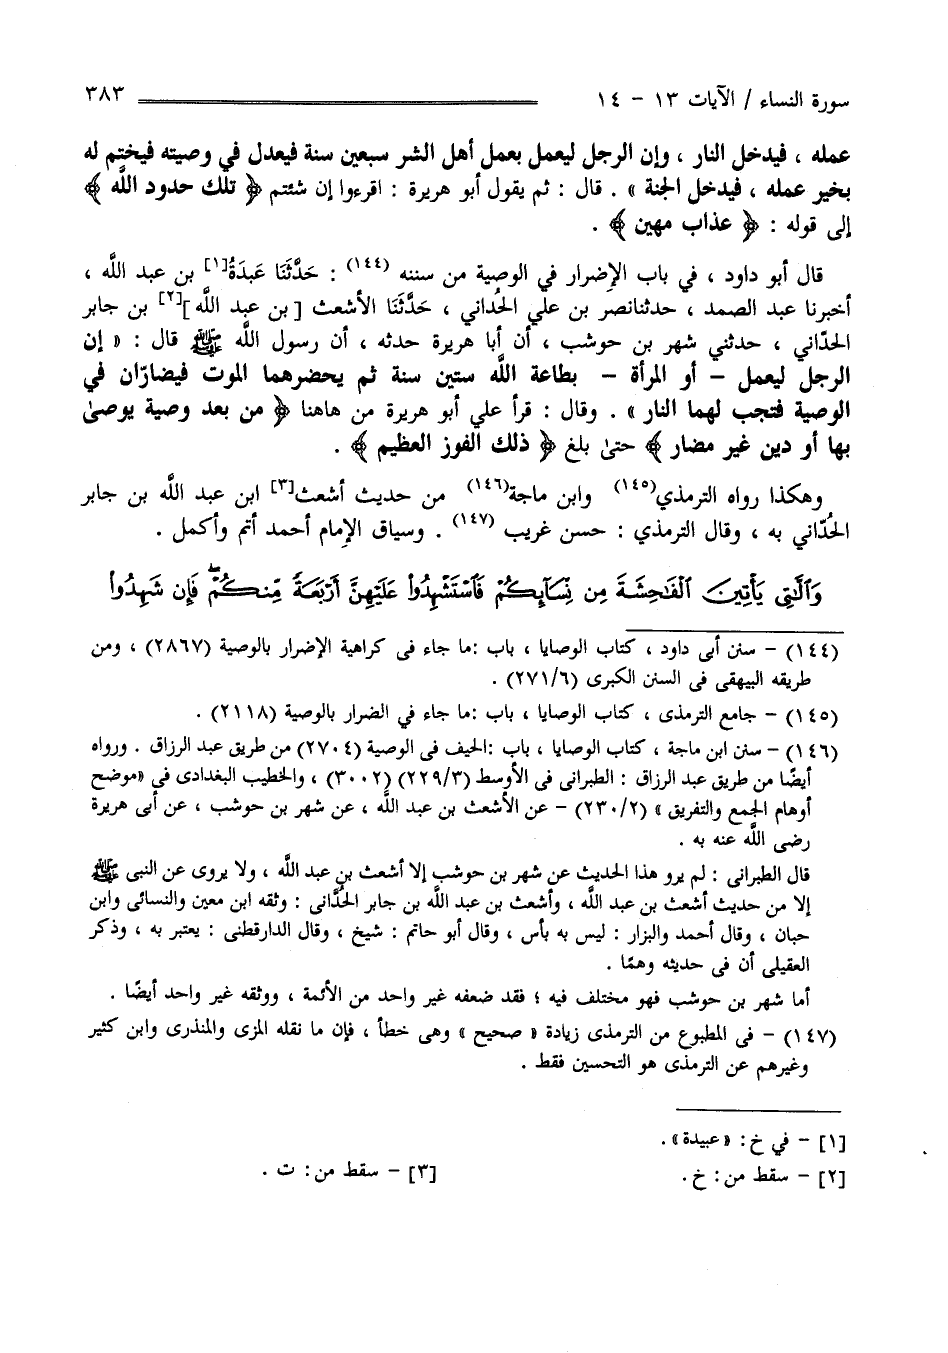 سورة النساء / الآيات ١٣ - ١٤ ٣٨٣
عمله ، فيدخل النار ، وإن الرجل ليعمل بعمل أهل الشر سبعين سنة فيعدل في وصيته فيختم له
بخير عمله ، فيدخل الجنة » . قال : ثم يقول أبو هريرة : اقرءوا إن شئتم ﴿ تلك حدود اللَّه ﴾
إلى قوله : ﴿ عذاب مهين ﴾ .
قال أبو داود ، في باب الإضرار في الوصية من سننه (١٤٤) : حَدَّثَنَا عَبدَةُ[١] بن عبد اللَّه ،
أخبرنا عبد الصمد ، حدثنانصر بن علي الحُداني ، حَدَّثَنَا الأشعث [ بن عبد اللَّه ][٢] بن جابر
الحدّاني ، حدثني شهر بن حوشب ، أن أبا هريرة حدثه ، أن رسول اللَّه ﷺ قال : « إن
الرجل ليعمل - أو المرأة - بطاعة اللَّه ستين سنة ثم يحضرهما الموت فيضارّان في
الوصية فتجب لهما النار » . وقال : قرأ علي أبو هريرة من هاهنا ﴿ من بعد وصية يوصىٰ
بها أو دين غير مضار ﴾ حتىٰ بلغ ﴿ ذلك الفوز العظيم ﴾ .
وهكذا رواه الترمذي(١٤٥) وابن ماجة(١٤٦) من حديث أشعث[٣] ابن عبد اللَّه بن جابر
الحُدّاني به ، وقال الترمذي : حسن غريب (١٤٧) . وسياق الإمام أحمد أتم وأكمل .
وَٱلَّٰتِى يَأْتِينَ ٱلْفَٰحِشَةَ مِن نِّسَآئِكُمْ فَٱسْتَشْهِدُوا۟ عَلَيْهِنَّ أَرْبَعَةً مِّنكُمْ ۖ فَإِن شَهِدُوا۟
(١٤٤) - سنن أبى داود ، كتاب الوصايا ، باب :ما جاء فى كراهية الإضرار بالوصية (٢٨٦٧) ، ومن
طريقه البيهقى فى السنن الكبرى (٢٧١/٦) .
(١٤٥) - جامع الترمذى ، كتاب الوصايا ، باب :ما جاء في الضرار بالوصية (٢١١٨) .
(١٤٦) - سنن ابن ماجة ، كتاب الوصايا ، باب :الحيف فى الوصية (٢٧٠٤) من طريق عبد الرزاق . ورواه
أيضًا من طريق عبد الرزاق : الطبرانى فى الأوسط (٢٢٩/٣) (٣٠٠٢) ، والخطيب البغدادى فى «موضح
أوهام الجمع والتفريق » (٢٣٠/٢) - عن الأشعث بن عبد اللَّه ، عن شهر بن حوشب ، عن أبى هريرة
رضى اللَّه عنه به .
قال الطبرانى : لم يرو هذا الحديث عن شهر بن حوشب إلا أشعث بن عبد اللَّه ، ولا يروى عن النبى ﷺ
إلا من حديث أشعث بن عبد اللَّه ، وأشعث بن عبد اللَّه بن جابر الحُدَّانى : وثقه ابن معين والنسائى وابن
حبان ، وقال أحمد والبزار : ليس به بأس ، وقال أبو حاتم : شيخ ، وقال الدارقطنى : يعتبر به ، وذكر
العقيلى أن فى حديثه وهمًا .
أما شهر بن حوشب فهو مختلف فيه ؛ فقد ضعفه غير واحد من الأئمة ، ووثقه غير واحد أيضًا .
(١٤٧) - فى المطبوع من الترمذى زيادة « صحيح » وهى خطأ ، فإن ما نقله المزى والمنذرى وابن كثير
وغيرهم عن الترمذى هو التحسين فقط .
[١] - في خ : «عبيدة» .
[٢] - سقط من : خ . [٣] - سقط من : ت .